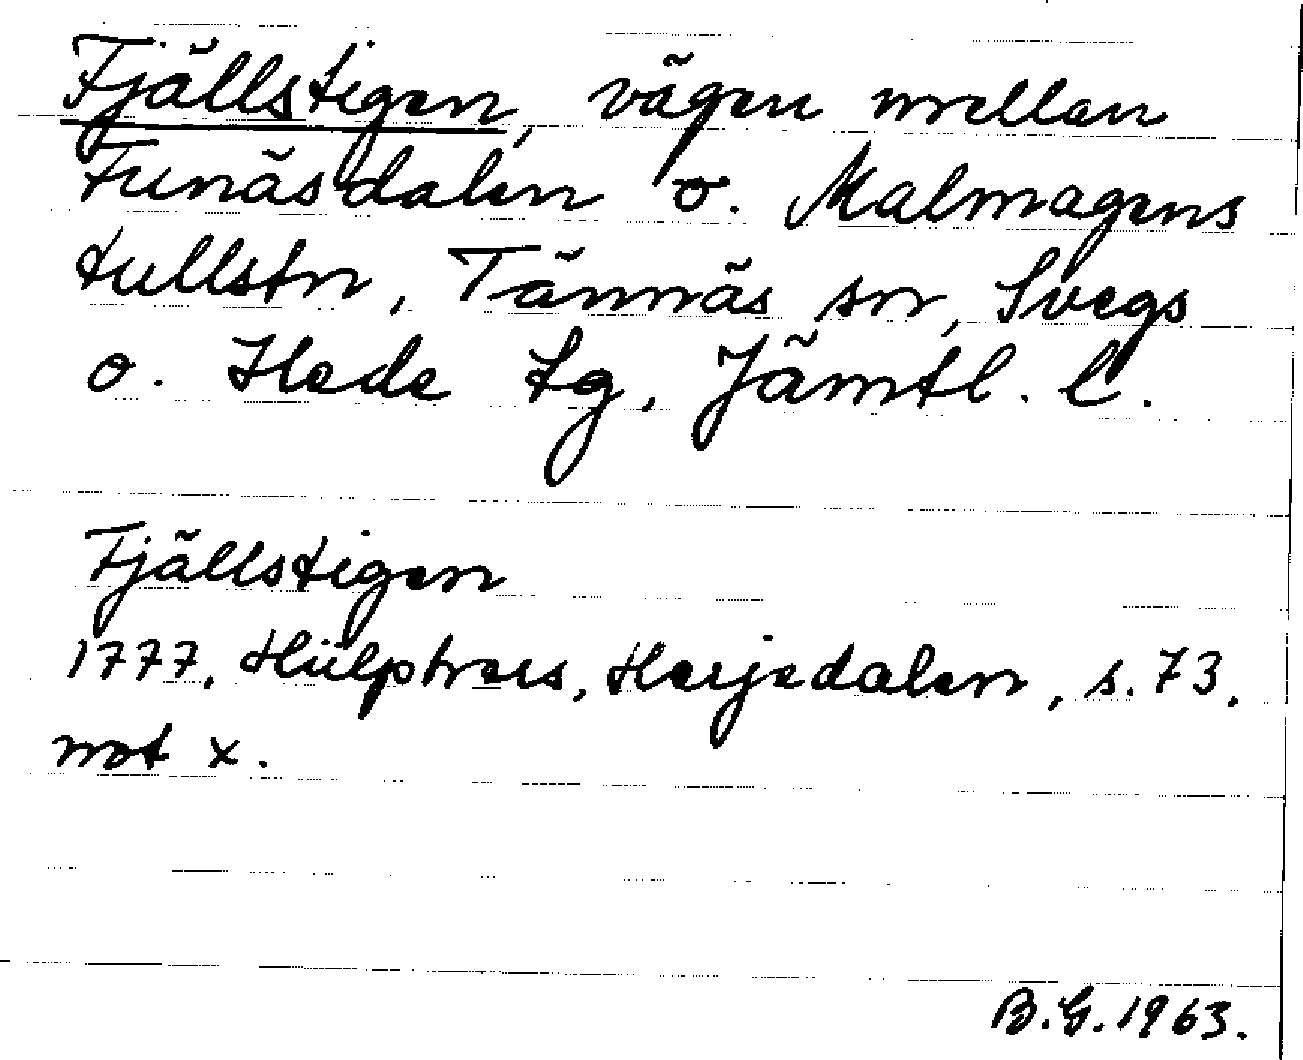 Fjällstigen, vägen mellan
Funäsdalen o. Malmagens
tullstn, Tännäs sn, Svegs
o. Hede tg, Jämtl. l.
Fjällstigen
1777, Hülphers, Herjedalen, s. 73,
not x.
B.G. 1963.